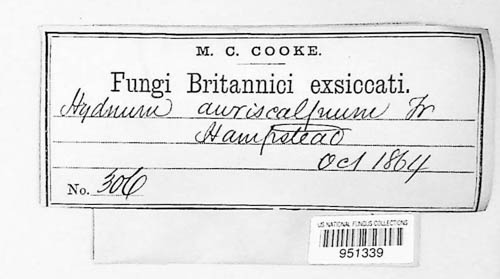 M. C. COOKE.
Fungi Britannici exsiccati.
Hydnum auriscalpium Fr
Hampstead
Oct 1864
No. 306
US NATIONAL FUNGUS COLLECTIONS
951339